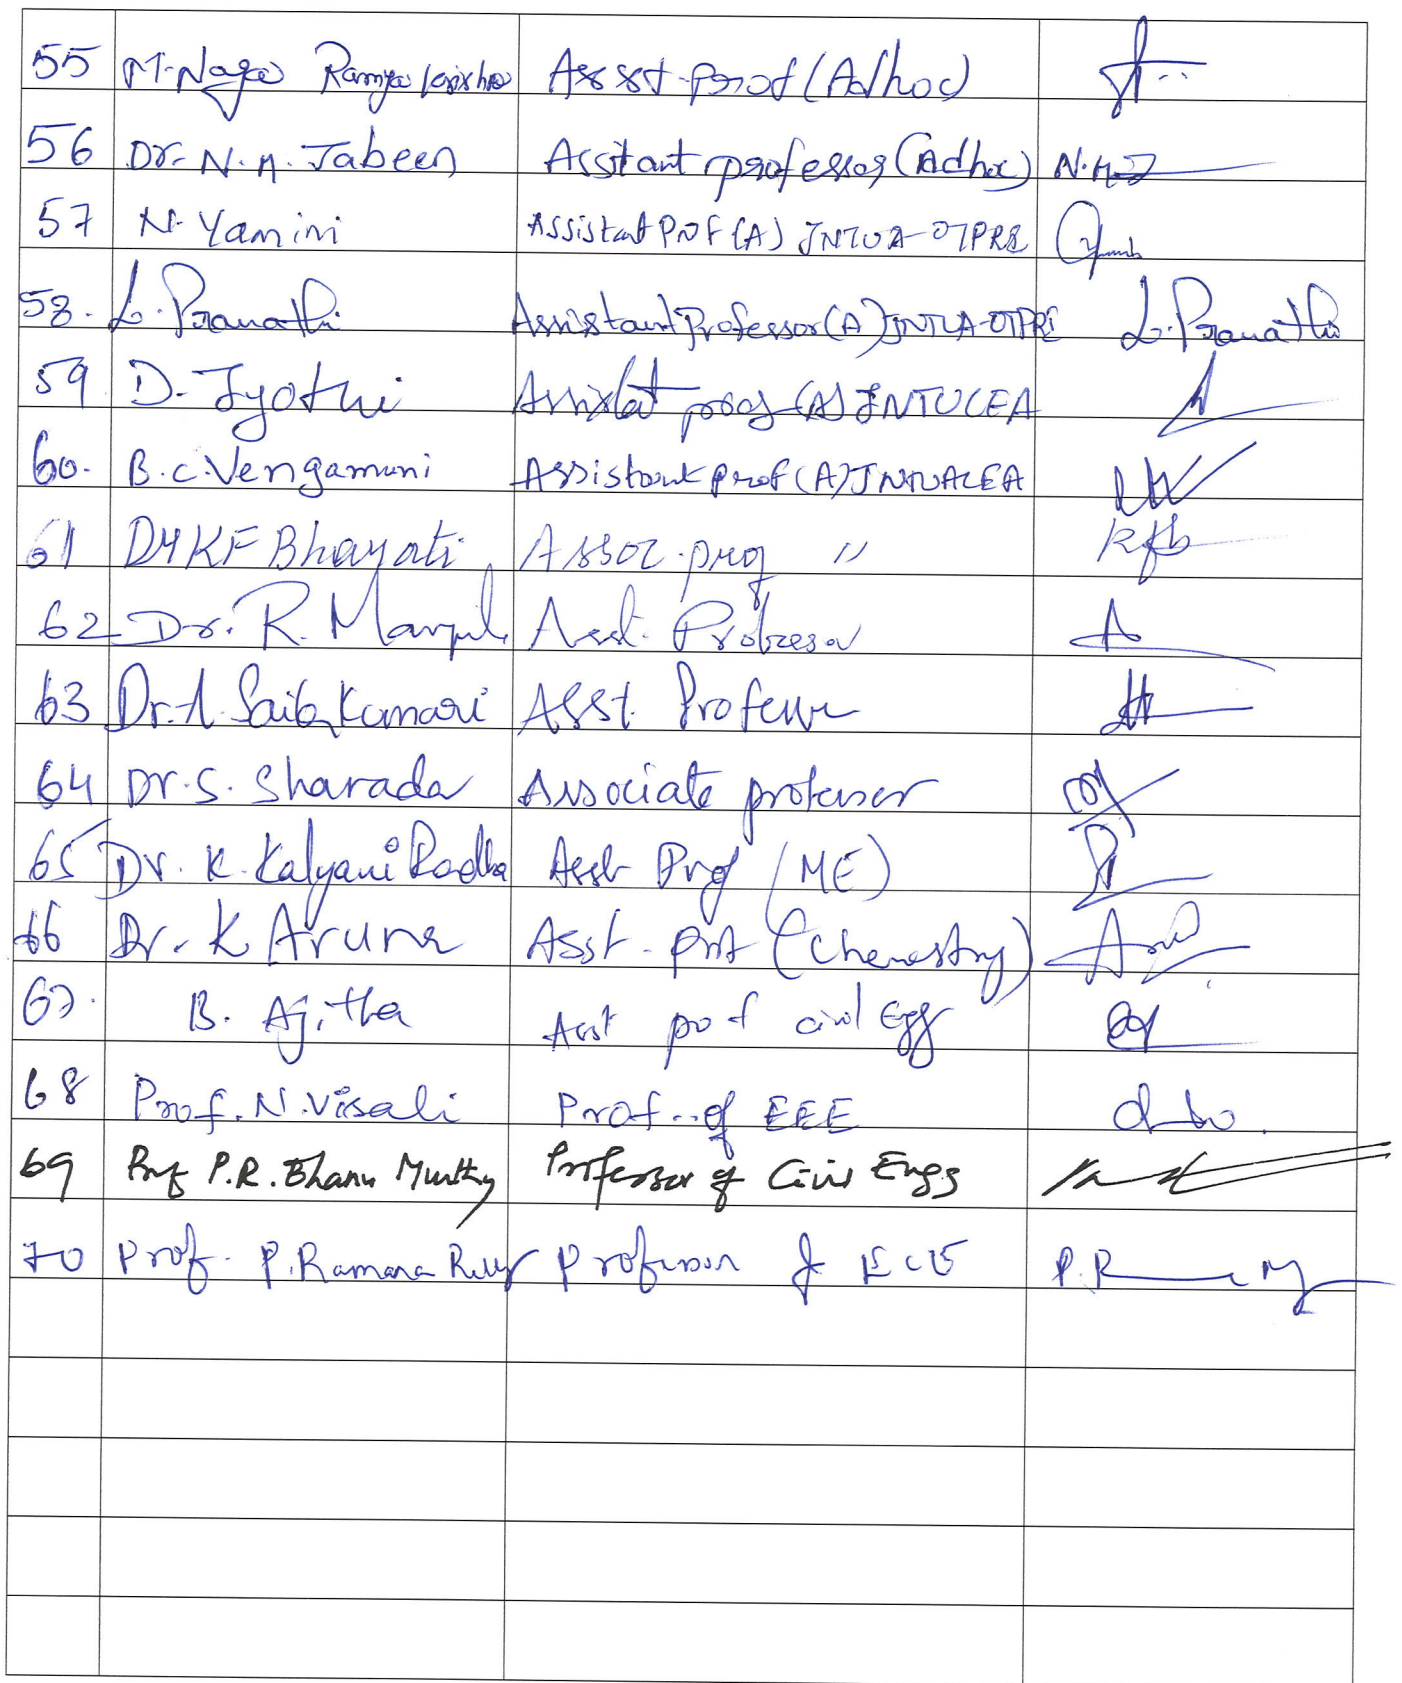 55 M. Naga Ramya Krishna Asst. Prof (Adhoc)
56 Dr. N. A. Jabeen Assitant professor (Adhoc) N.A.J
57 N. Yamini Assistant Prof (A) JNTUA-OTPRI
58. L. Pranathi Assistant Professor (A) JNTUA-OTPRI L. Pranathi
59 D. Jyothi Assistat prof (A) JNTUCEA
60. B.C. Vengamuni Assistant prof (A) JNTUACEA
61 D4KF Bhayati Assoc. prof " kfb
62 Dr. R. Asst. Professor
63 Dr. A. Kumari Asst. Professor
64 Dr. S. Sharada Associate professor
65 Dr. K. Kalyani Radha Asst Prof (ME)
66 Dr. K Aruna Asst. Prof (Chemestry)
67. B. Ajitha Asst prof civil Egg
68 Prof. N. Visali Prof. of EEE
69 Prof P.R. Bhanu Murthy Professor of Civil Engg
70 Prof. P. Ramana Reddy Professor of ECE P.R